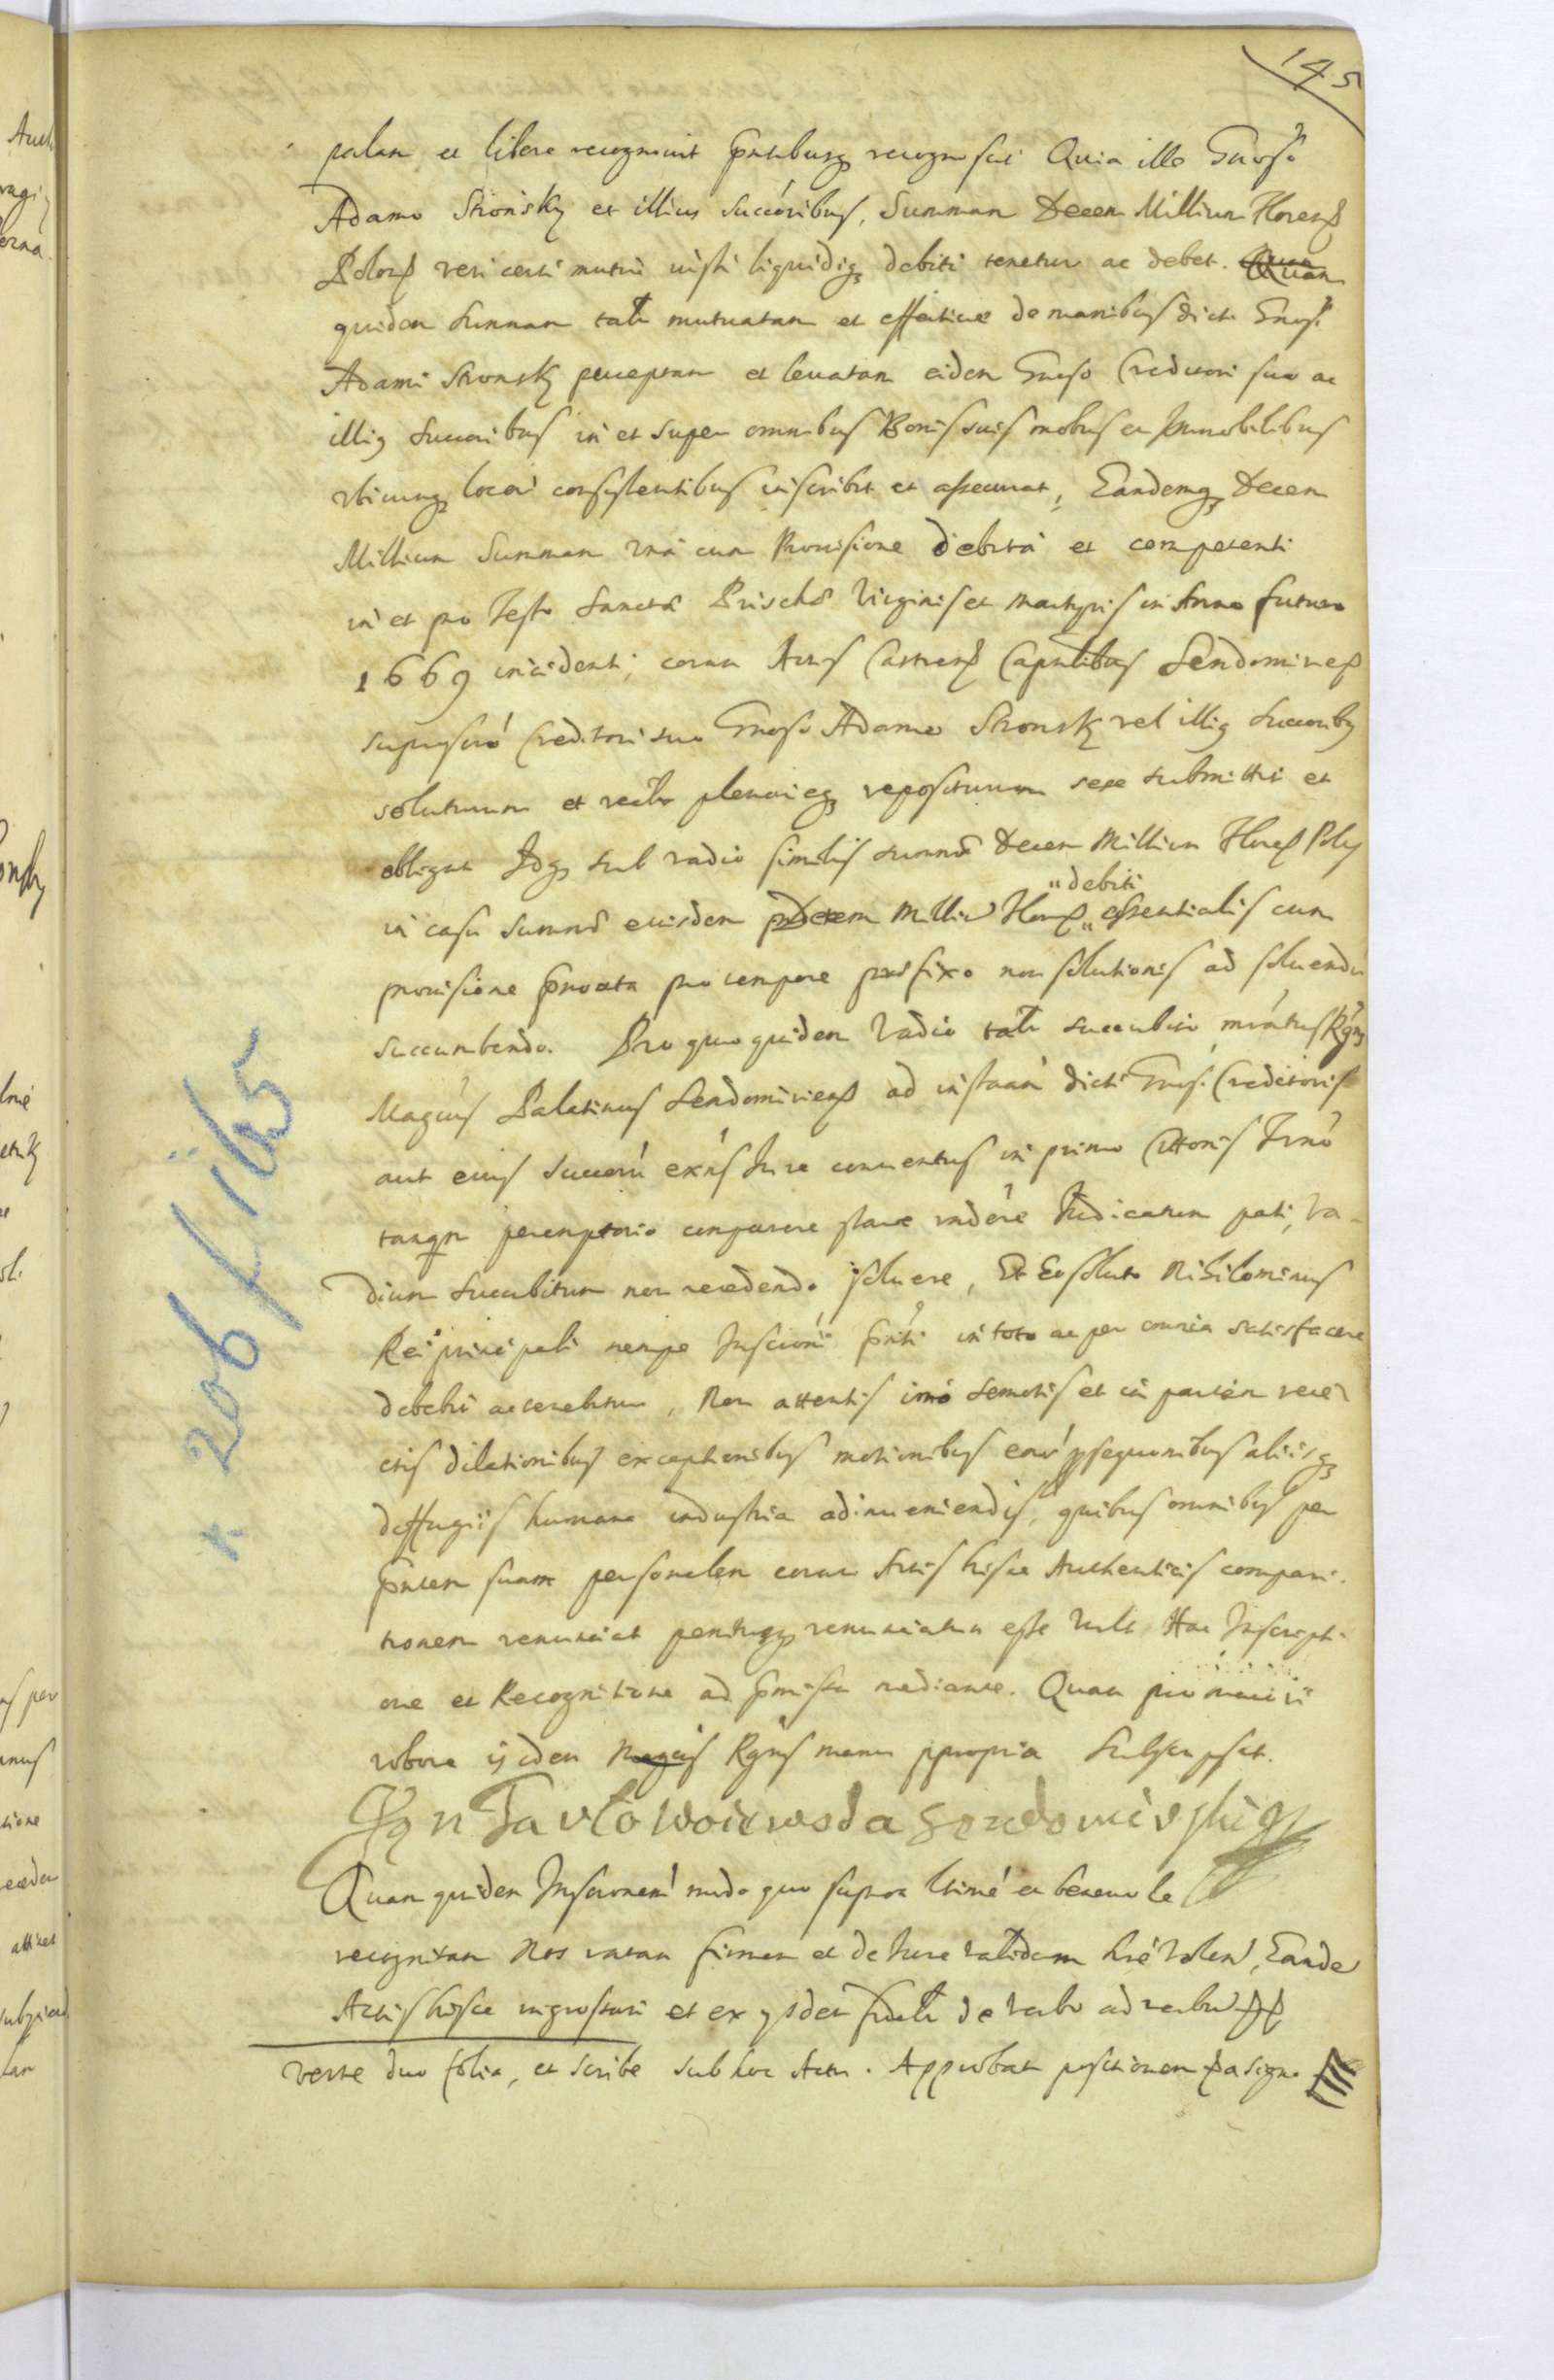 145
palam et libere recognovit pntibusq recognoscit Quia ille Gnoso
Adamo Stronsky et illius succoribus, Summam Decem Millium Florenß
Polonß veri certi mutui iusti liquidiq debiti tenetur ac debet. Quam
quidem Summam talr mutuatam et effective de manibus dicti Gnosi
Adami Stronsky perceptam et levatam eidem Gnoso Creditori suo ac
illiq succoribus in et super omnibus Bonis suis mobus et Immobilibus
vbicunq locor consistentibus inscribit et assecurat, Eandemq Decem
Millium Summam vna cum Provisione debita et competenti
in et pro Festo Sanctæ Priscæ Virginis et Martyris in Anno futuro
1669 incidenti, coram Actis Castrenß Capnlibus Sendomirenß
suprascro Creditori suo Gnoso Adamo Stronsky vel illiq succoribq
soluturum et realr plenarieq repositurum sese submittit et
obligat Idq sub vadio similis summæ Decem Millium Florenß Polq
debiti
in casu summæ eiusdem Decem Milliu Florenß essentialis cum
provisione pnotata pro tempore præfixo non solutionis ad solvendu
succumbendo. Pro quo quidem Vadio talr succubito mratus Rgns
Magcus Palatinus Sendomirienß ad instaam dicti Gnosi Creditoris
aut eius succorū exns Iure conventus in primo Cittonis Trno
tanqm peremptorio comparere stare rndere Iudicatum pati, Va-
dium succubitum non recedendo solvere, Et Eo soluto Nihilominus
Rei principali nempe Inscroni pnti in toto ac per omnia satisfacere
debebit ac tenebitur, Non attentis imo semotis et in partem reie-
ctis dilationibus exceptionibus motionibus earu psequonibus aliisq
deffugiis humana industria adinveniendis, quibus omnibus per
pntem suam personalem coram Actis hisce Authenticis compari-
tionem renunciat penitusq renunciatum esse vult Hac Inscripti-
one et Recognitione ad pmissa mediante. Quam pro maiori
robore ijdem Magcus Rgns manu ppropria subscripsit.
Jan Tarło Woiewoda Sendomirskigo
Quam quidem Inscronem modo quo supra ltime et benevole
recognitam Nos ratam firmam et de Iure validam hre volen, Eande
Actis hisce ingrossari et ex ysdem fidelr de verbo ad verbu
verte duo folia, et scribe sub hoc Actu. Approbat positionem pa signo
k 206 / 165